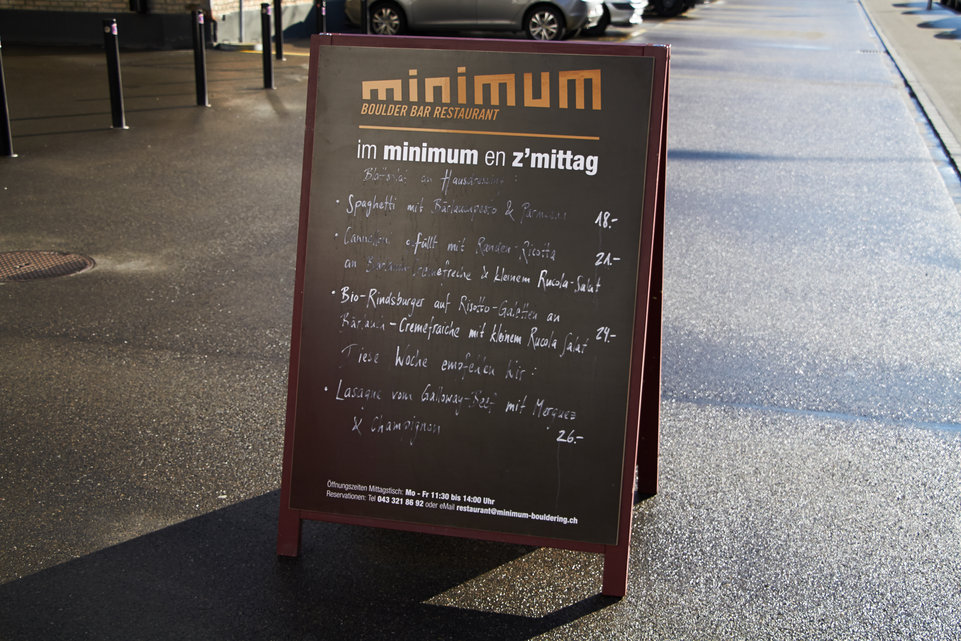 minimum
BOULDER BAR RESTAURANT
im minimum en z'mittag
an Hausdressing :
• Spaghetti mit Bärlauchpesto & Parmesan 18.-
• Cannelloni gefüllt mit Randen-Ricotta 21.-
an Bärlauch-Cremefreche & kleinem Rucola-Salat
• Bio-Rindsburger auf Risotto-Galetten an
Bärlauch-Cremefraiche mit kleinem Rucola Salat 24.-
Diese Woche empfehlen wir :
• Lasagne vom Galloway-Beef mit Merguez
& Champignon 26.-
Öffnungszeiten Mittagstisch: Mo - Fr 11:30 bis 14:00 Uhr
Reservationen: Tel 043 321 86 92 oder eMail restaurant@minimum-bouldering.ch